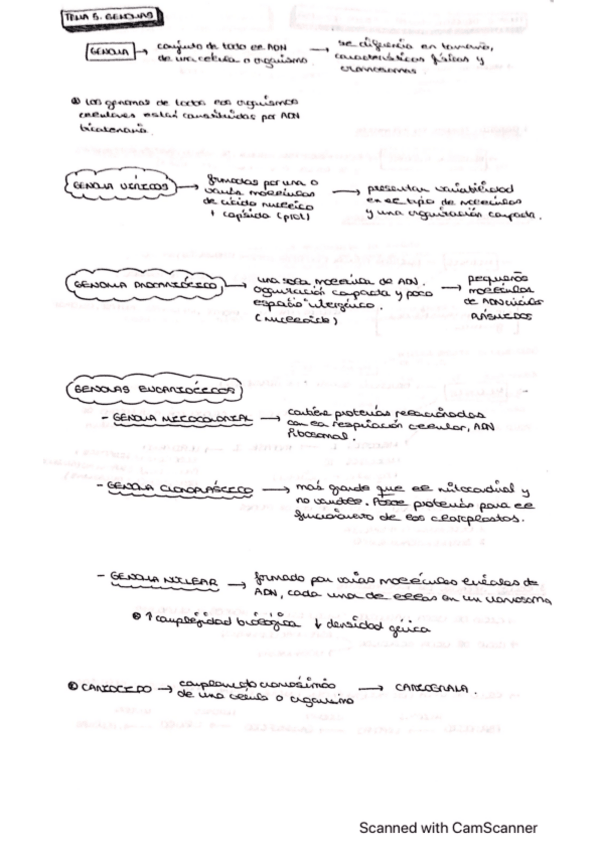 TEMA 5. GENOMAS
GENOMA → conjunto de todo el ADN → se diferencia en tamaño,
de una célula o organismo características físicas y
cromosomas
Los genomas de todos los organismos
celulares están constituidos por ADN
bicatenario.
GENOMA VÍRICOS → formados por una o → presentan variabilidad
varias moléculas en el tipo de moléculas
de ácido nucleico y una organización compacta.
+ cápsida (prot)
GENOMA PROCARIÓTICO → una sola molécula de ADN. → pequeñas
organización compacta y poco moléculas
espacio intergénico. de ADN
(nucleoide) PLÁSMIDOS
GENOMAS EUCARIÓTICOS
- GENOMA MITOCONDRIAL → contiene proteínas relacionadas
con la respiración celular, ADN
ribosomal.
- GENOMA CLOROPLÁSTICO → más grande que el mitocondrial y
no varía. Posee proteínas para el
funcionamiento de los cloroplastos.
- GENOMA NUCLEAR → formado por varias moléculas lineales de
ADN, cada una de ellas en un cromosoma
↑ complejidad biológica ↓ densidad génica
CARIOTIPO → complemento cromosómico → CARIOGRAMA.
de una célula o organismo
Scanned with CamScanner